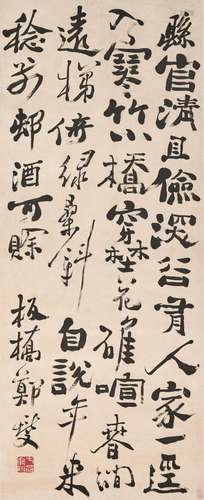 縣官清且儉深谷有人家一逕
入寒竹小橋穿埜花碓喧春澗
遠梯倚緑桑斜自說年来
稔前邨酒可賒
板橋鄭燮